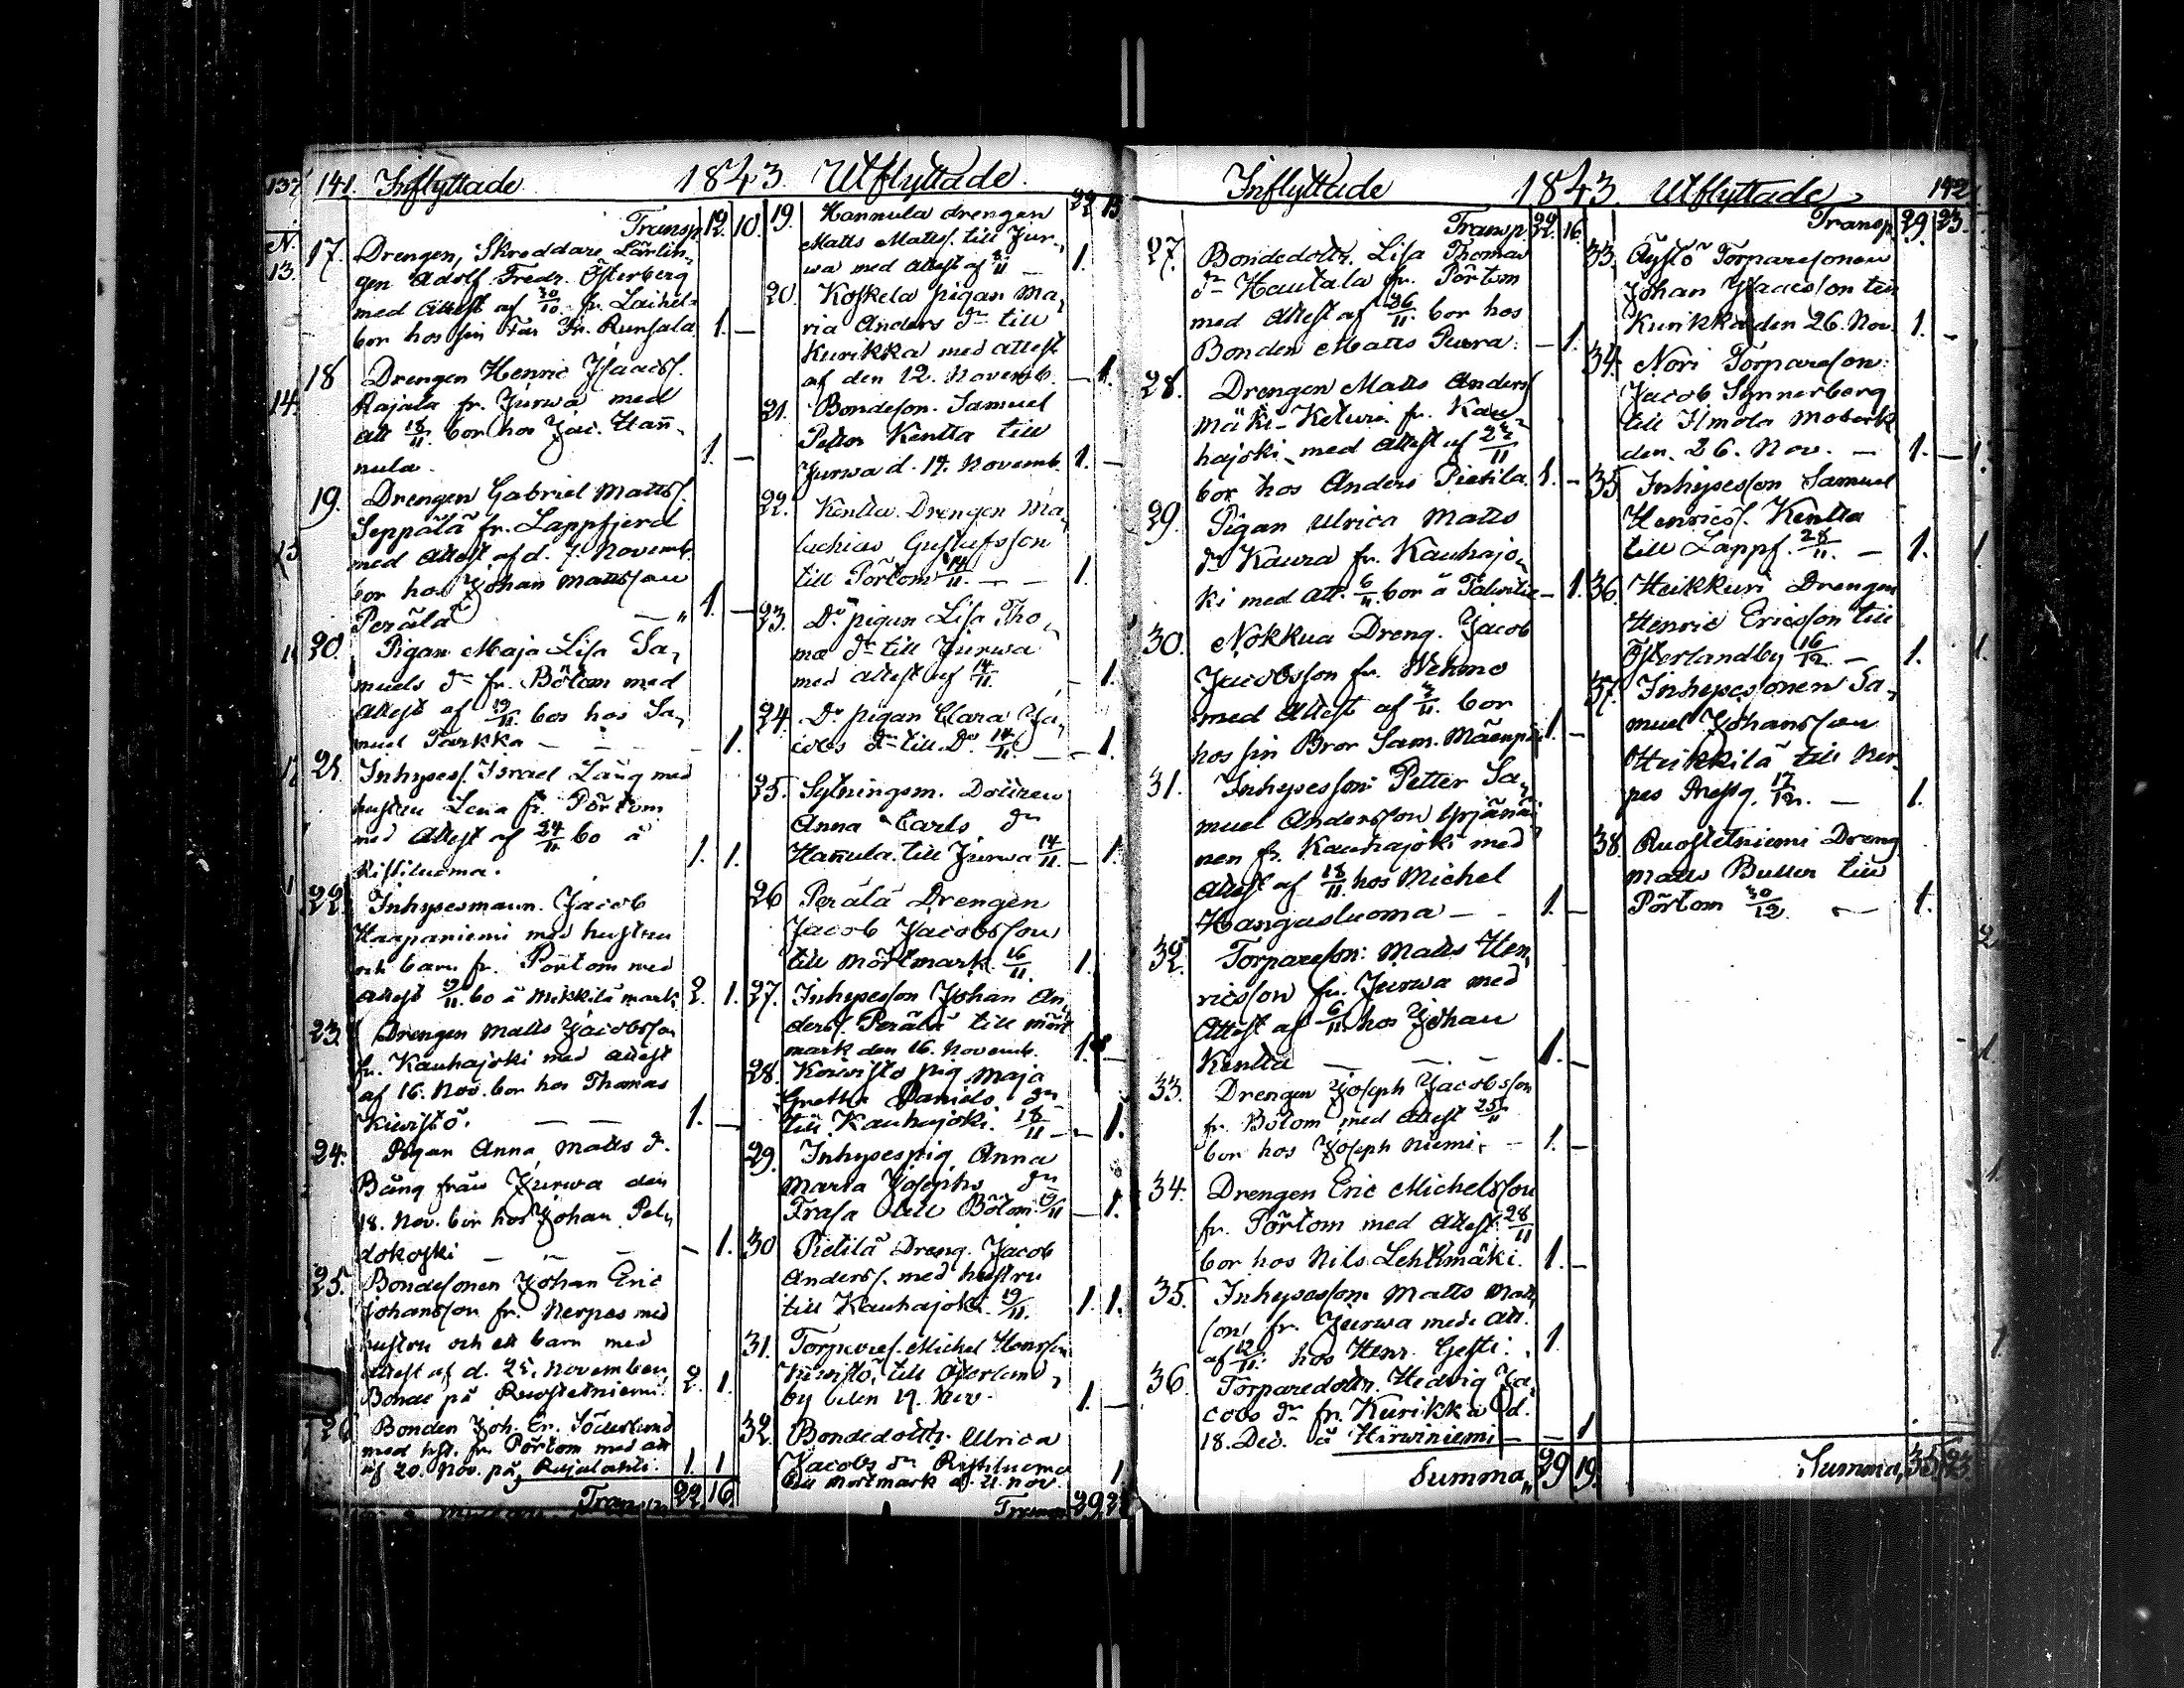 141. Inflyttade 1843. Utflyttade.
Transp. 12. 10.
17. Drengen, Skreddare Lärlin-
gen Adolf Fredr. Österberg
med attest af 30/10 fr. Laihela
bor hos sin Far Fr. Runsala 1. —
18 Drengen Henric Isaacss.
Rajala fr. Jurwa med
att 18/11. bor hos Jac. Han̄-
nula. 1. —
19. Drengen Gabriel Matts.
Seppälä fr. Lappfjerd
med attest af d. 7. Novemb.
bor hos Johan Mattsson
Perälä — 1. —
20. Pigan Maja Lisa Sa-
muels dr fr. Bötom med
attest af 19/11. bor hos Sa-
muel Parkka — — 1.
21. Inhyses. Israel Lång med
hustru Lena fr. Pörtom
med attest af 24/11 bo å
Ristiluoma. 1. 1.
22. Inhysesmann. Jacob
Haapaniemi med hustru
och barn fr. Pörtom med
attest 19/11. bo å Mikkilä mark 2. 1.
23. Drengen Matts Jacobsson
fr. Kauhajoki med attest
af 16. Nov. bor hos Thomas
Kiwistö. — — 1. —
24. Pigan Anna Matts d.
Bång från Jurwa den
18. Nov. bor hos Johan Pel-
dokoski — — — 1.
25. Bondesonen Johan Eric
Johansson fr. Nerpes med
hustru och ett barn med
attest af d. 25. November
Bonde på Ruostetniemi. 2. 1.
26 Bonden Joh. Er. Söderlund
med hst. fr. Pörtom med att
af 20. Nov. på Rajalahti. 1. 1
Transp. 22 16
22 15
19. Hannula drengen
Matts Matts. till Jur-
wa med attest af /11 — 1.
20. Koskela pigan Ma-
ria Anders dr till
Kurikka med attest
af den 12. Novemb. — 1.
21. Bondeson. Samuel
Petter Kentta till
Jurwa d. 14. Novemb. 1. —
22. Kentta Drengen Ma-
lachias Gustafsson
till Pörtom 14/11. — — 1.
23. Do pigan Lisa Tho-
mæ dr till Jurwa
med attest af 14/11. — 1.
24. Do pigan Clara Ja-
cobs dr till Do 14/11. — — 1.
25. Sytningsm. Dottren
Anna Carls dr
Han̄ula till Jurwa 14/11. — 1.
26 Perälä Drengen
Jacob Jacobsson
till Mörtmark 16/11. 1.
27. Inhysesson Johan An-
ders. Perälä till Mört
mark den 16. Novemb. 1. —
28. Koiwisto pig. Maja
Gretha Daniels dr
till Kauhajoki. 18/11 — — 1.
29. Inhysespig. Anna
Maria Josephs dr
Frasa till Bötom 19/11 — 1.
30 Pietilä Dreng. Jacob
Anderss. med hustru
till Kauhajoki 19/11. 1. 1.
31. Torpares. Michel Henrss.
Kiwistö, till Österland-
by den 19. Nov. 1. —
32. Bondedottr. Ulrica
Jacobs dr Ristiluoma
till Mörtmark d. 21. nov. 1
Transp. 29
Inflyttade 1843. Utflyttade 142.
Transp. 22. 16.
27. Bondedottr. Lisa Thomas
dr Hautala fr. Pörtom
med attest af 26/11. bor hos
Bonden Matts Purra. — 1.
28. Drengen Matts Anders
mäki-Keturi fr. Kau-
hajoki med attest af /11
bor hos Anders Pietila. 1. —
29. Pigan Ulrica Matts
dr Kaura fr. Kauhajo-
ki med att. 6/11. bor å — 1.
30. Nokkua Dreng. Jacob
Jacobsson fr. Wehmo
med attest af /11. bor
hos sin Bror Sam. Mäenpää 1. —
31. Inhysesson Petter Sa-
muel Andersson Yrjänäi
nen fr. Kauhajoki med
attest af 18/11. hos Michel
Hangasluoma — — 1. —
32. Torpareson: Matts Hen-
ricsson fr. Jurwa med
attest af 6/11 hos Johan
Kentta — — — 1. —
33. Drengen Joseph Jacobsson
fr. Bötom med attest 25/11
bor hos Joseph Niemi. — 1. —
34. Drengen Eric Michelsson
fr. Pörtom med attest 28/11
bor hos Nils Lehtimäki. 1. —
35. Inhysesson Matts Matts
son fr. Jurwa med att.
af 12/11. hos Henr. Gesti. 1.
36. Torparedottr. Hedvig Ja-
cobs dr fr. Kurikka d.
18. Dec. å Hirwiniemi — — 1
Summa, 29 19.
Transp. 29. 23.
33. Äystö Torparesonen
Johan Isaacsson till
Kurikka den 26. Nov. 1. —
34. Nori Torpareson:
Jacob Synnerberg
till Ilmola Moderk.
den. 26. Nov. — 1. —
35 Inhysesson Samuel
Henricss. Kentta
till Lappf. 28/11. — 1.
36. Heikkuri Drengen
Henric Ericsson till
Österlandby 16/12. — 1.
37. Inhysesonen Sa-
muel Johansson
Heikkilä till Ner-
pes Prestg. 17/12. — 1.
38 Ruostetniemi Dreng
Matts Buller till
Pörtom 30/12. — 1.
Summa, 35 23